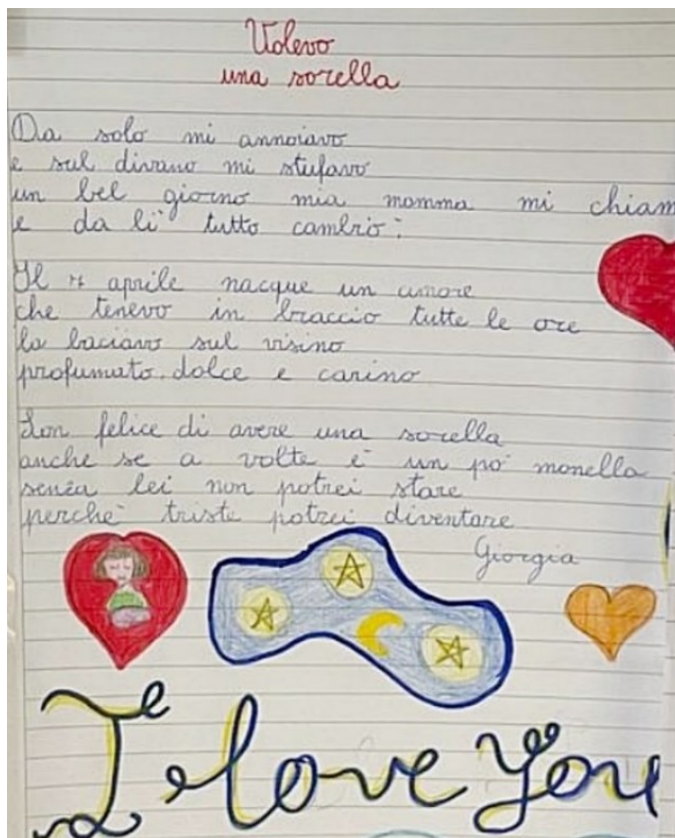 Volevo
una sorella
Da solo mi annoiavo
e sul divano mi stufavo
un bel giorno mia mamma mi chiam
e da lì tutto cambiò:
Il 7 aprile nacque un amore
che tenevo in braccio tutte le ore
la baciavo sul visino
profumato, dolce e carino
Son felice di avere una sorella
anche se a volte è un po' monella
senza lei non potrei stare
perchè triste potrei diventare
Giorgia
I love You